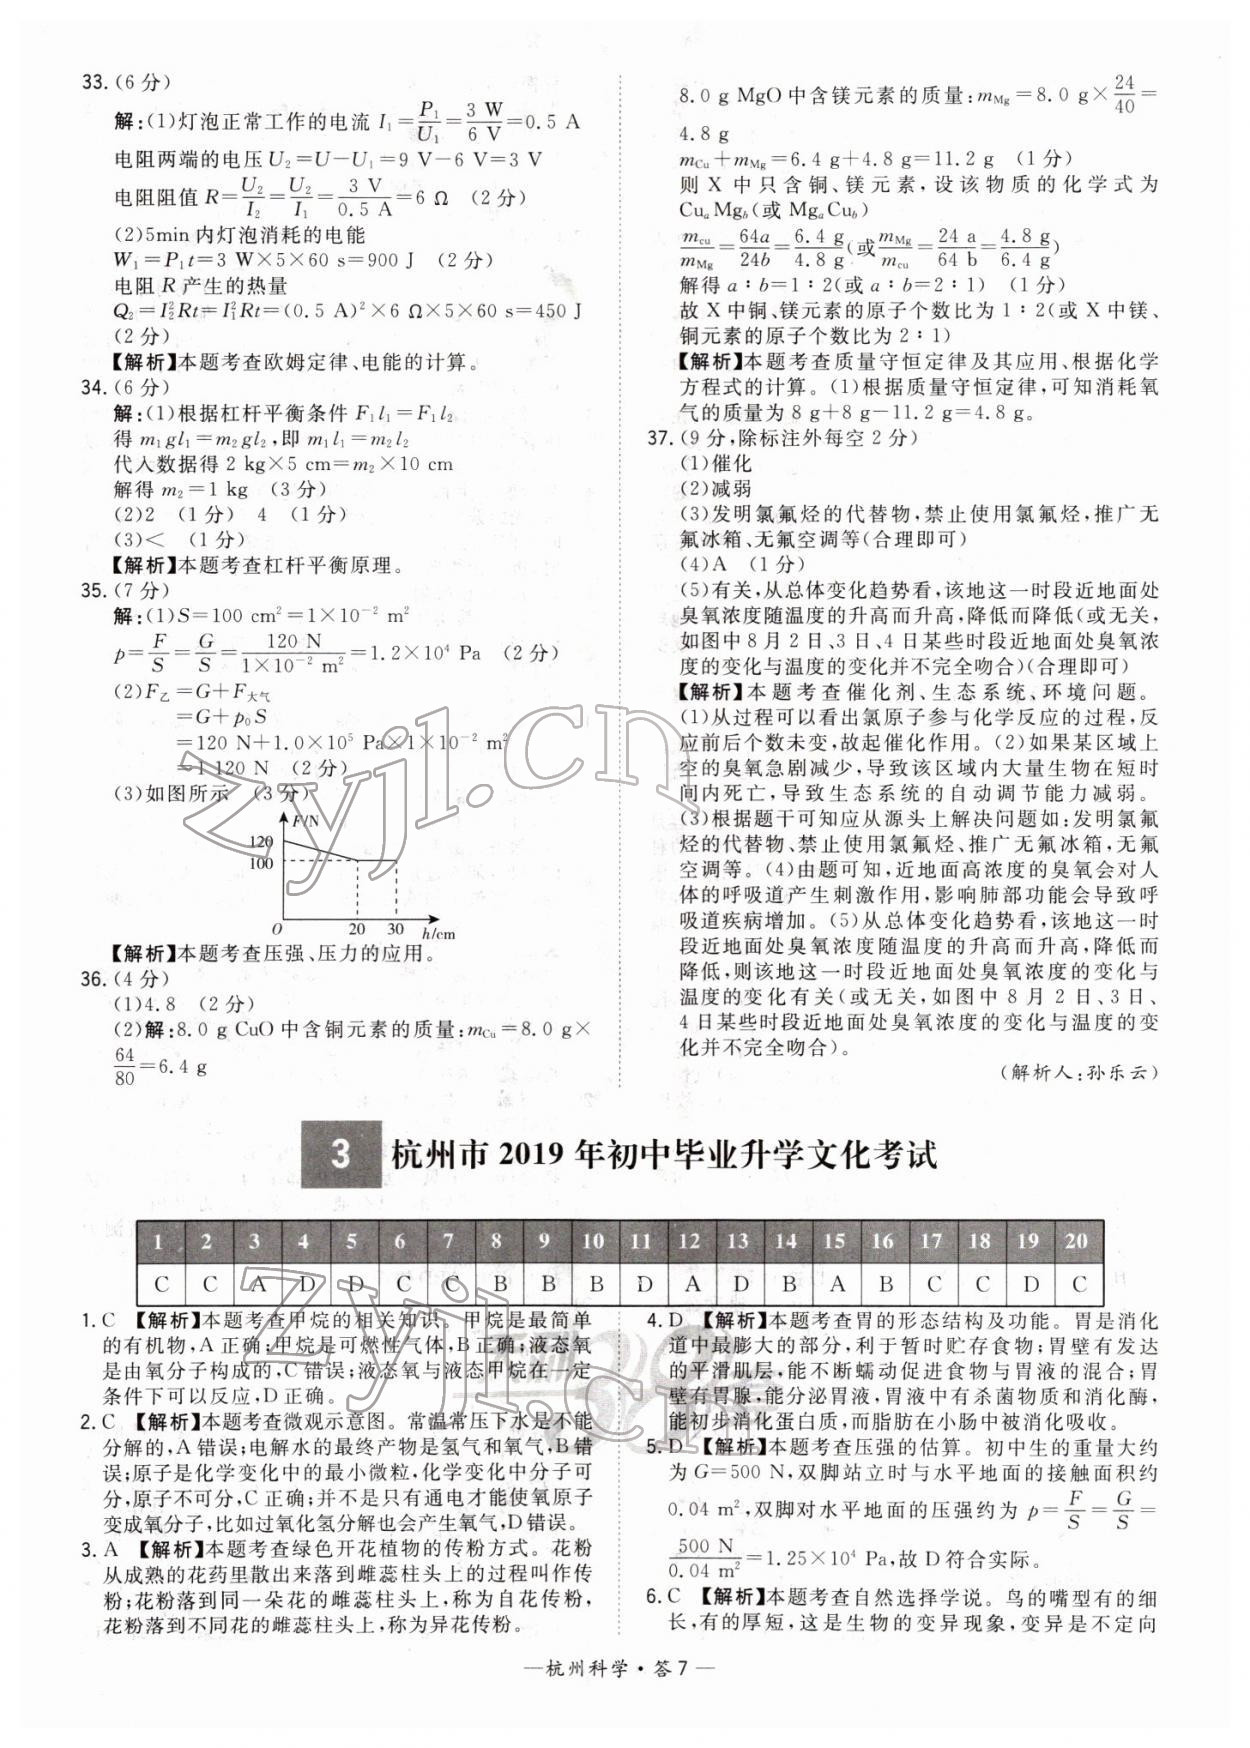 33.(6 分)
解:(1)灯泡正常工作的电流 I₁=P₁/U₁=3 W/6 V=0.5 A
电阻两端的电压 U₂=U-U₁=9 V-6 V=3 V
电阻阻值 R=U₂/I₂=U₂/I₁=3 V/0.5 A=6 Ω (2 分)
(2)5min 内灯泡消耗的电能
W₁=P₁t=3 W×5×60 s=900 J (2 分)
电阻 R 产生的热量
Q₂=I₂²Rt=I₁²Rt=(0.5 A)²×6 Ω×5×60 s=450 J
(2 分)
【解析】本题考查欧姆定律、电能的计算。
34.(6 分)
解:(1)根据杠杆平衡条件 F₁l₁=F₁l₂
得 m₁gl₁=m₂gl₂,即 m₁l₁=m₂l₂
代入数据得 2 kg×5 cm=m₂×10 cm
解得 m₂=1 kg (3 分)
(2)2 (1 分) 4 (1 分)
(3)< (1 分)
【解析】本题考查杠杆平衡原理。
35.(7 分)
解:(1)S=100 cm²=1×10⁻² m²
p=F/S=G/S=120 N/1×10⁻² m²=1.2×10⁴ Pa (2 分)
(2)F乙=G+F大气
=G+p₀S
=120 N+1.0×10⁵ Pa×1×10⁻² m²
=1 120 N (2 分)
(3)如图所示 (3 分)
F/N
120
100
O 20 30 h/cm
【解析】本题考查压强、压力的应用。
36.(4 分)
(1)4.8 (2 分)
(2)解:8.0 g CuO 中含铜元素的质量:mCu=8.0 g×
64/80=6.4 g
8.0 g MgO 中含镁元素的质量:mMg=8.0 g×24/40=
4.8 g
mCu+mMg=6.4 g+4.8 g=11.2 g (1 分)
则 X 中只含铜、镁元素,设该物质的化学式为
CuaMgb(或 MgaCub)
mcu/mMg=64a/24b=6.4 g/4.8 g(或mMg/mcu=24 a/64 b=4.8 g/6.4 g)
解得 a∶b=1∶2(或 a∶b=2∶1) (1 分)
故 X 中铜、镁元素的原子个数比为 1∶2(或 X 中镁、
铜元素的原子个数比为 2∶1)
【解析】本题考查质量守恒定律及其应用、根据化学
方程式的计算。(1)根据质量守恒定律,可知消耗氧
气的质量为 8 g+8 g-11.2 g=4.8 g。
37.(9 分,除标注外每空 2 分)
(1)催化
(2)减弱
(3)发明氯氟烃的代替物,禁止使用氯氟烃,推广无
氟冰箱、无氟空调等(合理即可)
(4)A (1 分)
(5)有关,从总体变化趋势看,该地这一时段近地面处
臭氧浓度随温度的升高而升高,降低而降低(或无关,
如图中 8 月 2 日、3 日、4 日某些时段近地面处臭氧浓
度的变化与温度的变化并不完全吻合)(合理即可)
【解析】本题考查催化剂、生态系统、环境问题。
(1)从过程可以看出氯原子参与化学反应的过程,反
应前后个数未变,故起催化作用。(2)如果某区域上
空的臭氧急剧减少,导致该区域内大量生物在短时
间内死亡,导致生态系统的自动调节能力减弱。
(3)根据题干可知应从源头上解决问题如:发明氯氟
烃的代替物、禁止使用氯氟烃、推广无氟冰箱,无氟
空调等。(4)由题可知,近地面高浓度的臭氧会对人
体的呼吸道产生刺激作用,影响肺部功能会导致呼
吸道疾病增加。(5)从总体变化趋势看,该地这一时
段近地面处臭氧浓度随温度的升高而升高,降低而
降低,则该地这一时段近地面处臭氧浓度的变化与
温度的变化有关(或无关,如图中 8 月 2 日、3 日、
4 日某些时段近地面处臭氧浓度的变化与温度的变
化并不完全吻合)。
(解析人:孙乐云)
3 杭州市 2019 年初中毕业升学文化考试
1 2 3 4 5 6 7 8 9 10 11 12 13 14 15 16 17 18 19 20
C C A D D C C B B B D A D B A B C C D C
1. C 【解析】本题考查甲烷的相关知识。甲烷是最简单
的有机物,A 正确;甲烷是可燃性气体,B 正确;液态氧
是由氧分子构成的,C 错误;液态氧与液态甲烷在一定
条件下可以反应,D 正确。
2. C 【解析】本题考查微观示意图。常温常压下水是不能
分解的,A 错误;电解水的最终产物是氢气和氧气,B 错
误;原子是化学变化中的最小微粒,化学变化中分子可
分,原子不可分,C 正确;并不是只有通电才能使氧原子
变成氧分子,比如过氧化氢分解也会产生氧气,D 错误。
3. A 【解析】本题考查绿色开花植物的传粉方式。花粉
从成熟的花药里散出来落到雌蕊柱头上的过程叫作传
粉;花粉落到同一朵花的雌蕊柱头上,称为自花传粉,
花粉落到不同花的雌蕊柱头上,称为异花传粉。
4. D 【解析】本题考查胃的形态结构及功能。胃是消化
道中最膨大的部分,利于暂时贮存食物;胃壁有发达
的平滑肌层,能不断蠕动促进食物与胃液的混合;胃
壁有胃腺,能分泌胃液,胃液中有杀菌物质和消化酶,
能初步消化蛋白质,而脂肪在小肠中被消化吸收。
5. D 【解析】本题考查压强的估算。初中生的重量大约
为 G=500 N,双脚站立时与水平地面的接触面积约
0.04 m²,双脚对水平地面的压强约为 p=F/S=G/S=
500 N/0.04 m²=1.25×10⁴ Pa,故 D 符合实际。
6. C 【解析】本题考查自然选择学说。鸟的嘴型有的细
长,有的厚短,这是生物的变异现象,变异是不定向
—杭州科学·答 7—
zyjl.cn
zyjl.cn